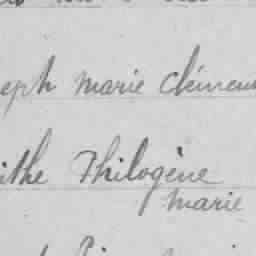 eph Marie Clémen
ithe Philogène
Marie